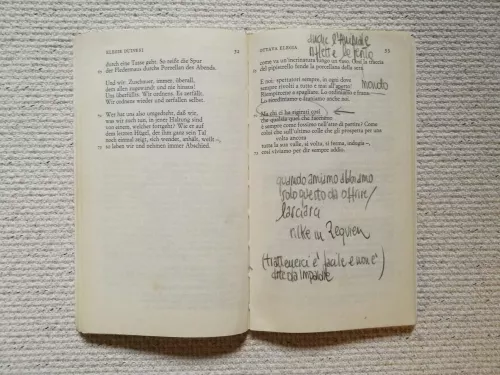 ELEGIE DUINESI
54
durch eine Tasse geht. So reißt die Spur
der Fledermaus durchs Porzellan des Abends.
Und wir: Zuschauer, immer, überall,
dem allen zugewandt und nie hinaus!
Uns überfüllts. Wir ordnens. Es zerfällt.
Wir ordnens wieder und zerfallen selbst.
Wer hat uns also umgedreht, daß wir,
was wir auch tun, in jener Haltung sind
von einem, welcher fortgeht? Wie er auf
dem letzten Hügel, der ihm ganz sein Tal
noch einmal zeigt, sich wendet, anhält, weilt –,
so leben wir und nehmen immer Abschied.
OTTAVA ELEGIA
55
anche l'animale
riflette
come va un'incrinatura lungo un vaso. Così la traccia
del pipistrello fende la porcellana della sera.
E noi: spettatori sempre, in ogni dove
sempre rivolti a tutto e mai all'aperto!
mondo
Riempirsene e spagliare. Lo ordiniamo. Si sfascia.
Lo riordiniamo e sfasciamo anche noi.
Ma chi ci ha rigirati così
che qualsia quel che facciamo
è sempre come fossimo nell'atto di partire? Come
colui che sull'ultimo colle che gli prospetta per una
volta ancora
tutta la sua valle, si volta, si ferma, indugia –,
così viviamo per dir sempre addio.
quando amiamo abbiamo
solo questo da offrire/
lasciarci
rilke in Requiem
(trattenerci è facile e non è
da imparare)